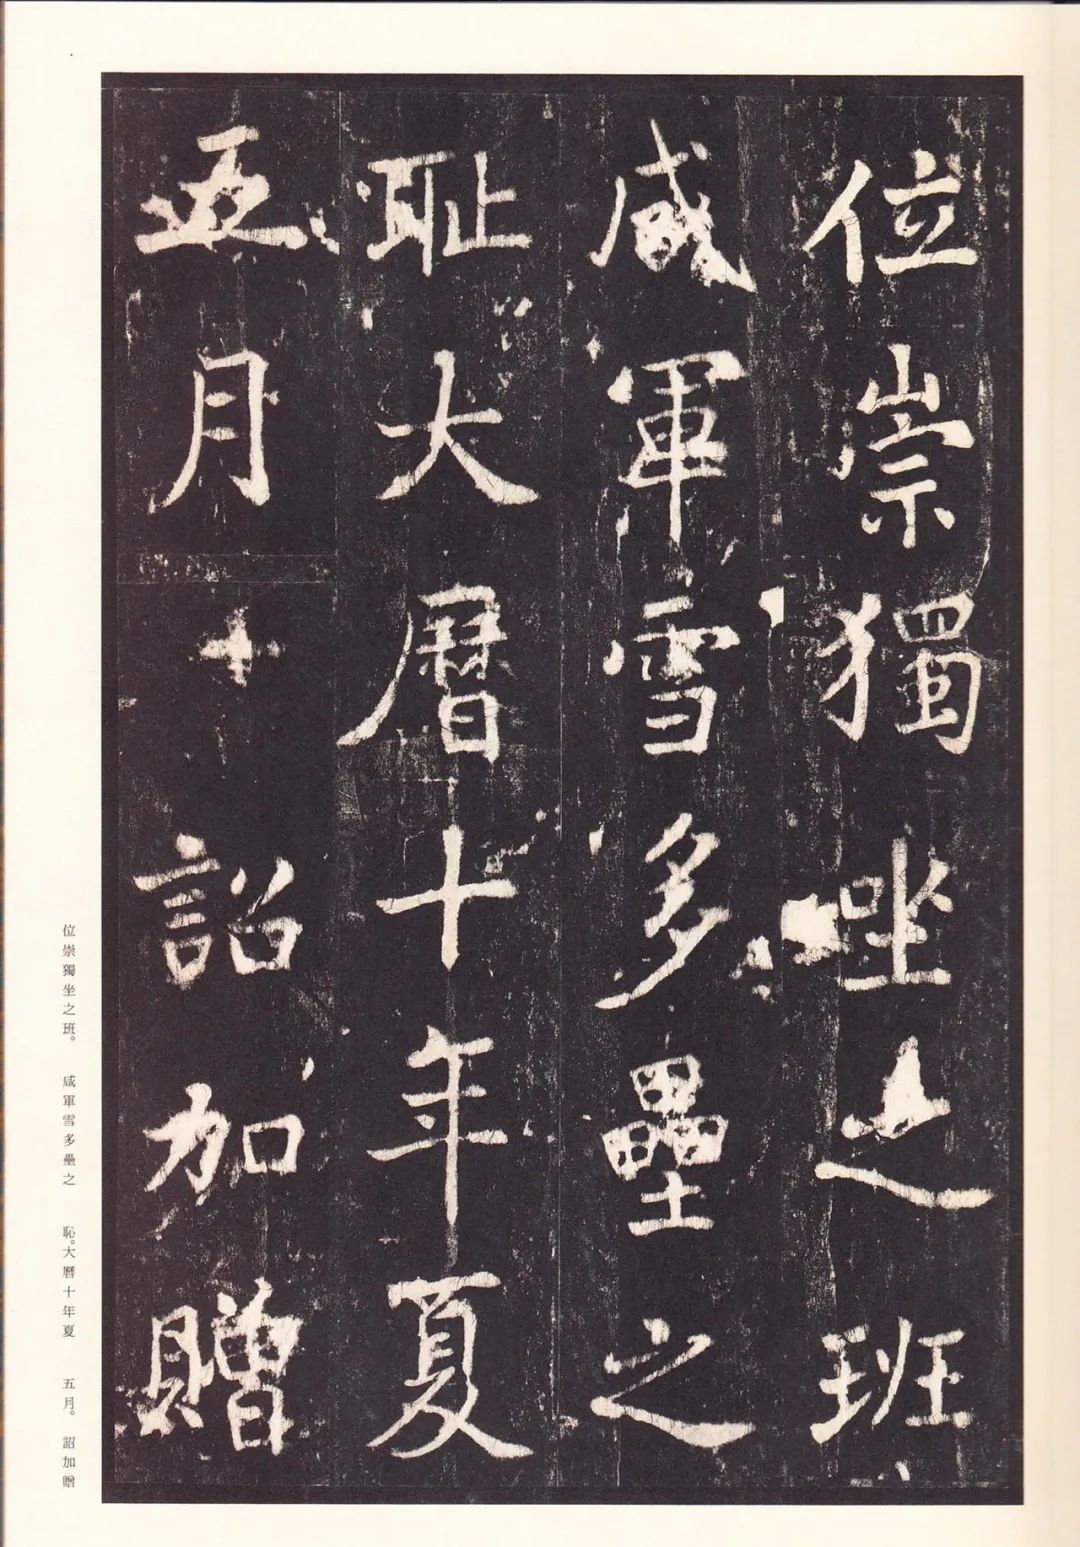 位崇獨坐之班
咸軍雪多壘之
耻大曆十年夏
五月詔加贈
位崇獨坐之班。 咸軍雪多壘之 恥。大曆十年夏 五月。 詔加贈